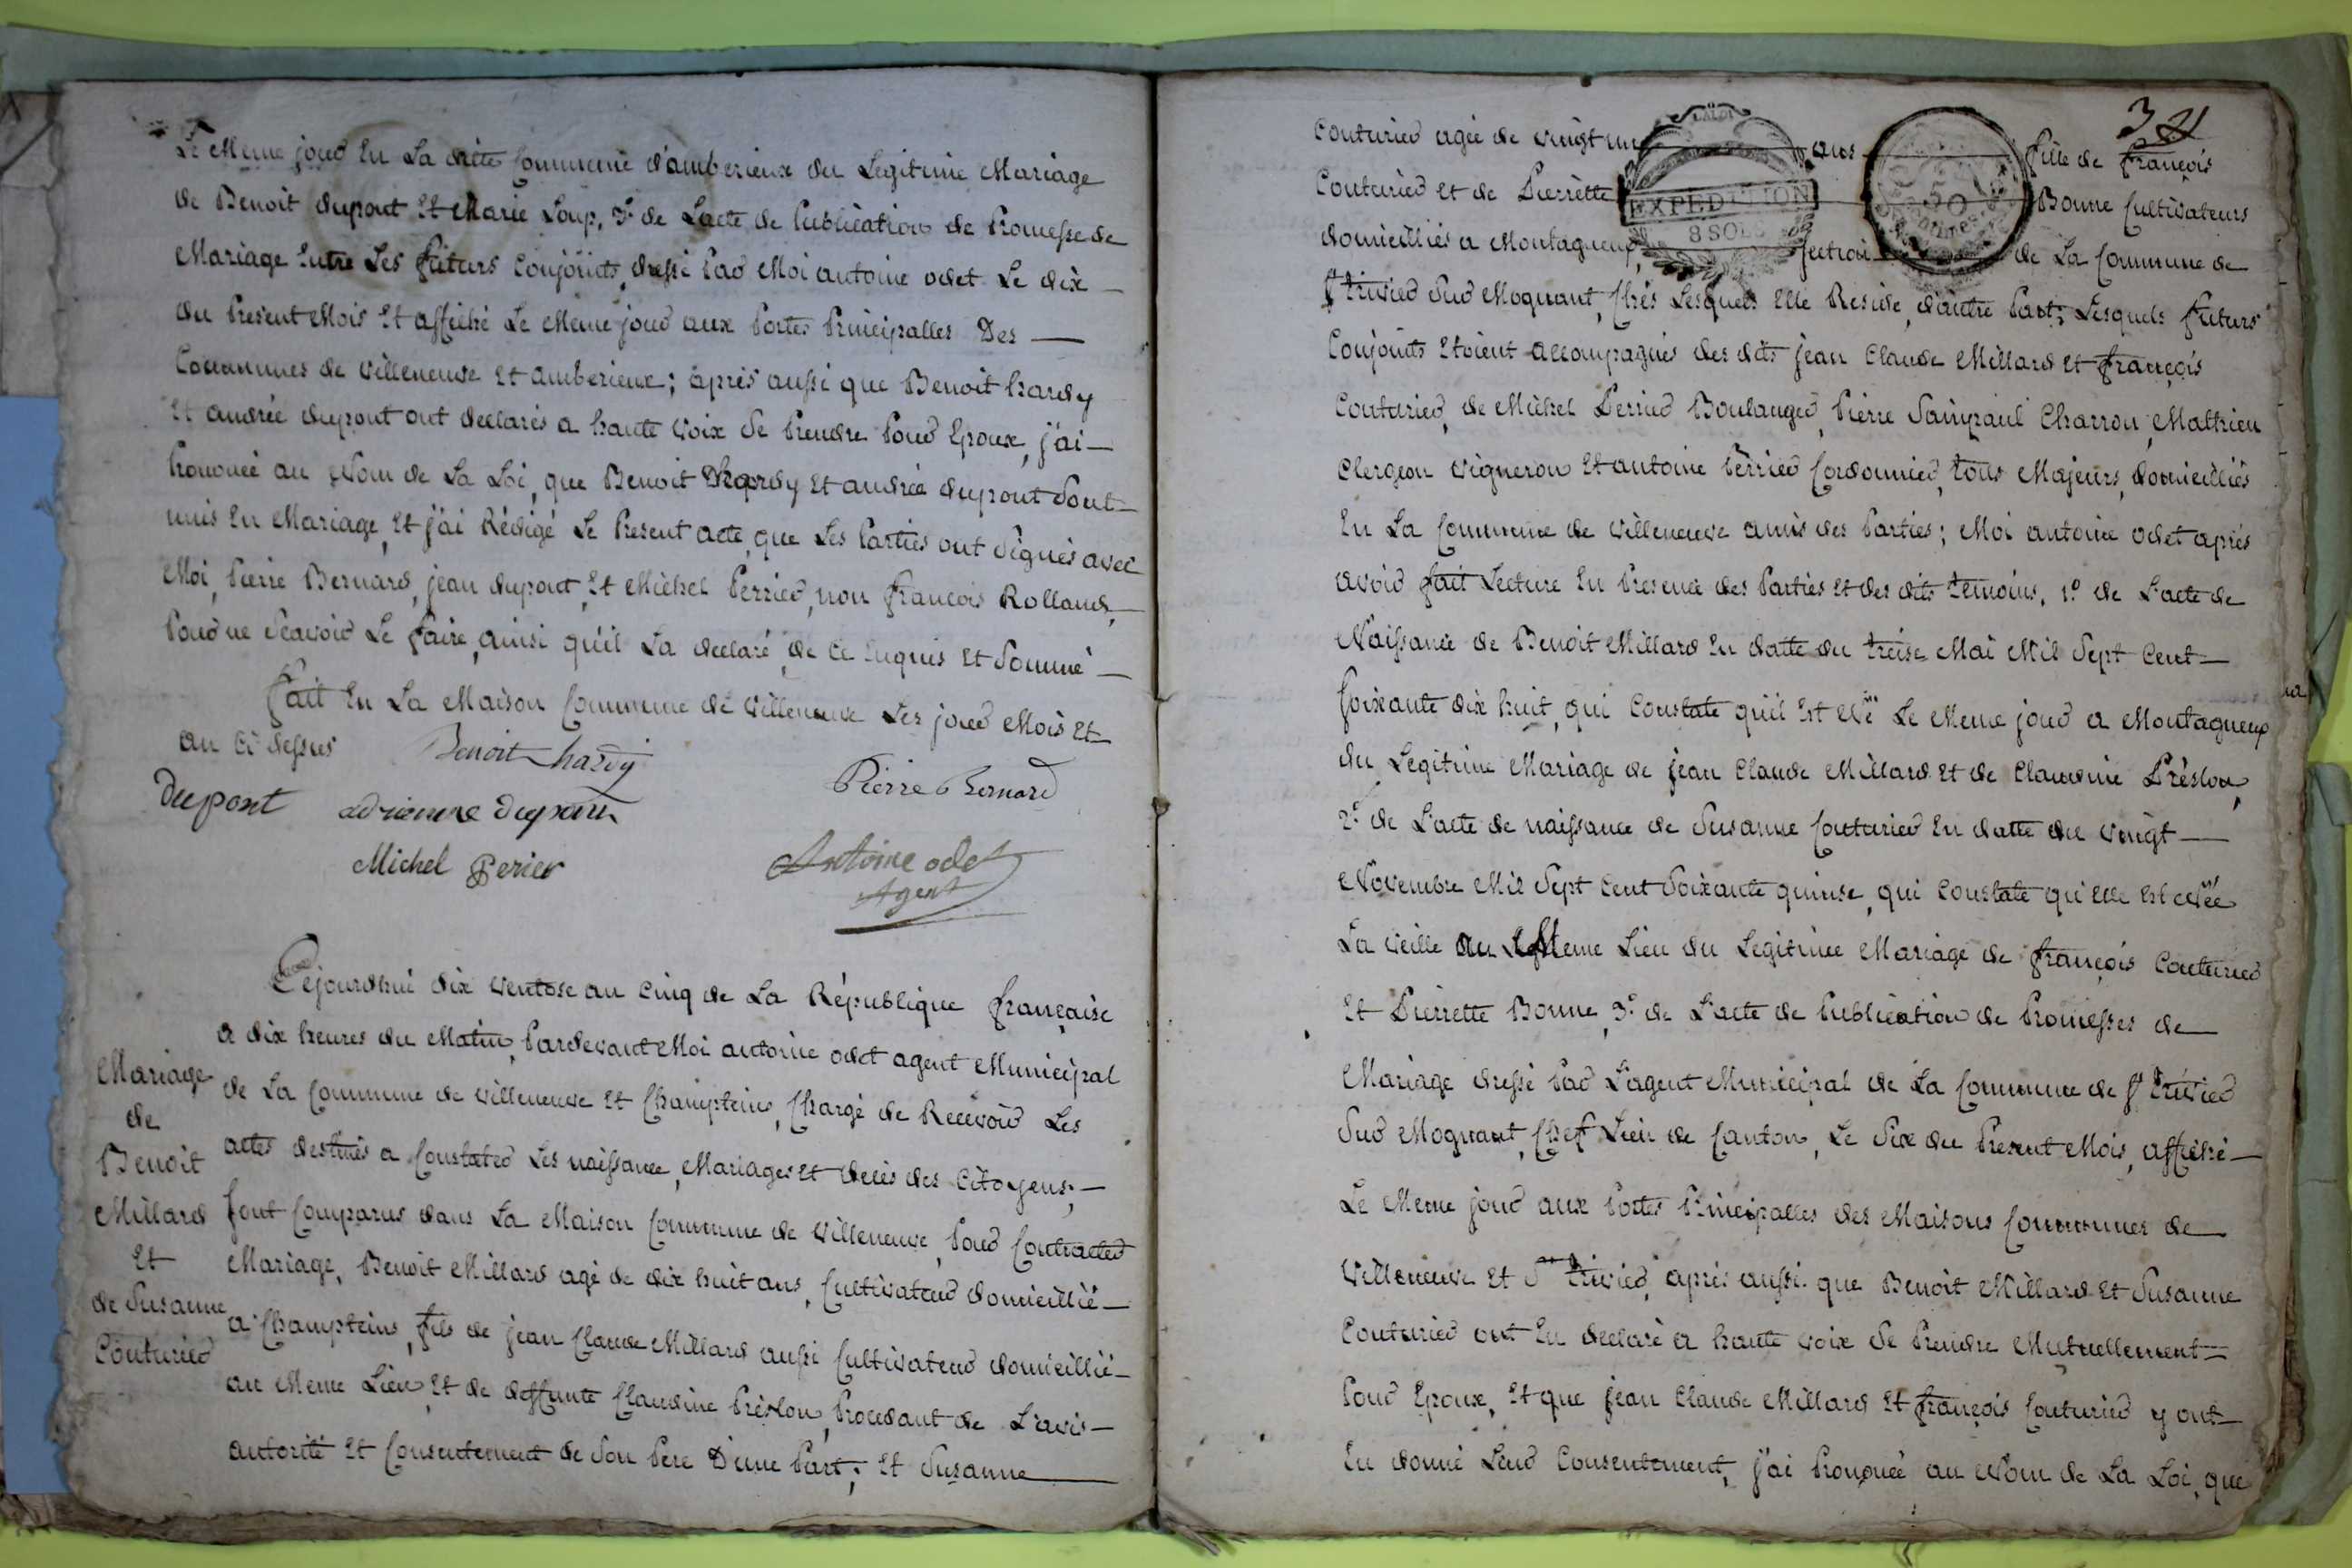 Le Meme jour En La dite Commune d'amberieux du Legitime Mariage
de Benoit dupont Et Marie Loup, 3º de Lacte de Publication de Promesse de
Mariage Entre Les futurs Conjoints, dressé Par Moi antoine odet Le dix
du Present Mois Et affiché Le Meme jour aux Portes Principalles Des
Communes de Villeneuve Et amberieux; après aussi que Benoit hardy
Et andrée dupont ont declarés a haute Voix Se Prendre Pour Epoux, j'ai
Prononcé au Nom de La Loi, que Benoit hardy Et andrée dupont Sont
unis En Mariage, Et j'ai Rédigé Le Present acte, que Les Parties ont Signés avec
Moi, Pierre Bernard, jean dupont, Et Michel Perrier, non françois Rolland,
Pour ne Scavoir Le faire, ainsi qu'il La declaré, de Ce Enquis Et Sommé
fait En La Maison Commune de Villeneuve Les jour Mois Et
an Ci dessus
Benoit hardy
Pierre Bernard
Dupont adrienne Dupont
Michel Perier
Antoine odet
Agent
Cejourdhui dix Ventose an Cinq de La République française
a dix heures du Matin, Pardevant Moi antoine odet agent Municipal
de La Commune de Villeneuve Et Champteins, Chargé de Recevoir Les
actes destinés a Constater Les naissance, Mariages Et decès des Citoyens;
Sont Comparus dans La Maison Commune de Villeneuve, Pour Contracter
Mariage, Benoit Millard agé de dix huit ans, Cultivateur domicillié
a Champteins, fils de jean Claude Millard aussi Cultivateur domicillié
au Meme Lieu, Et de deffunte Claudine Préslon, Procedant de L'avis
autorité Et Consentement de Son Pere D'une Part; Et Susanne
Mariage
de
Benoit
Millard
Et
de Susanne
Couturier
34
Couturier agée de Vingt un ans fille de françois
Couturier Et de Pierrette Bonne Cultivateurs
domicilliés a Montagneux, Section de La Commune de
St trivier Sur Mognant, Chés Lesquels Elle Reside, d'autre Part; Lesquels futurs
EXPÉDITION
8 SOLS
50
Conjoints Etoient accompagnés des dits jean Claude Millard Et françois
Couturier, de Michel Perrier Boulanger, Pierre Sainpaul Charron, Mathieu
Clergeon Vigneron Et antoine Perrier Cordonnier, tous Majeurs, domicilliés
En La Commune de Villeneuve amis des Parties; Moi antoine odet après
avoir fait Lecture En Presence des Parties Et des dits temoins, 1º de L'acte de
Naissance de Benoit Millard En datte du treise Mai Mil Sept Cent
Soixante dix huit, qui Constate qu'il Est Né Le Meme jour a Montagneux
du Legitime Mariage de jean Claude Millard Et de Claudine Préslon,
2º de L'acte de naissance de Susanne Couturier En datte du Vingt
Novembre Mil Sept Cent Soixante quinse, qui Constate qu'Elle Est Née
La Veille au Meme Lieu du Legitime Mariage de françois Couturier
Et Pierrette Bonne, 3º de L'acte de Publication de Promesses de
Mariage dressé Par L'agent Municipal de La Commune de St trivier
Sur Mognant, Chef Lieu de Canton, Le Six du Present Mois, affiché
Le Meme jour aux Portes Principalles des Maisons Communes de
Villeneuve Et St trivier, après aussi que Benoit Millard Et Susanne
Couturier ont Eu declaré a haute Voix Se Prendre Mutuellement
Pour Epoux, Et que jean Claude Millard Et françois Couturier y ont
Eu donné Leur Consentement, j'ai Prononcé au Nom de La Loi, que